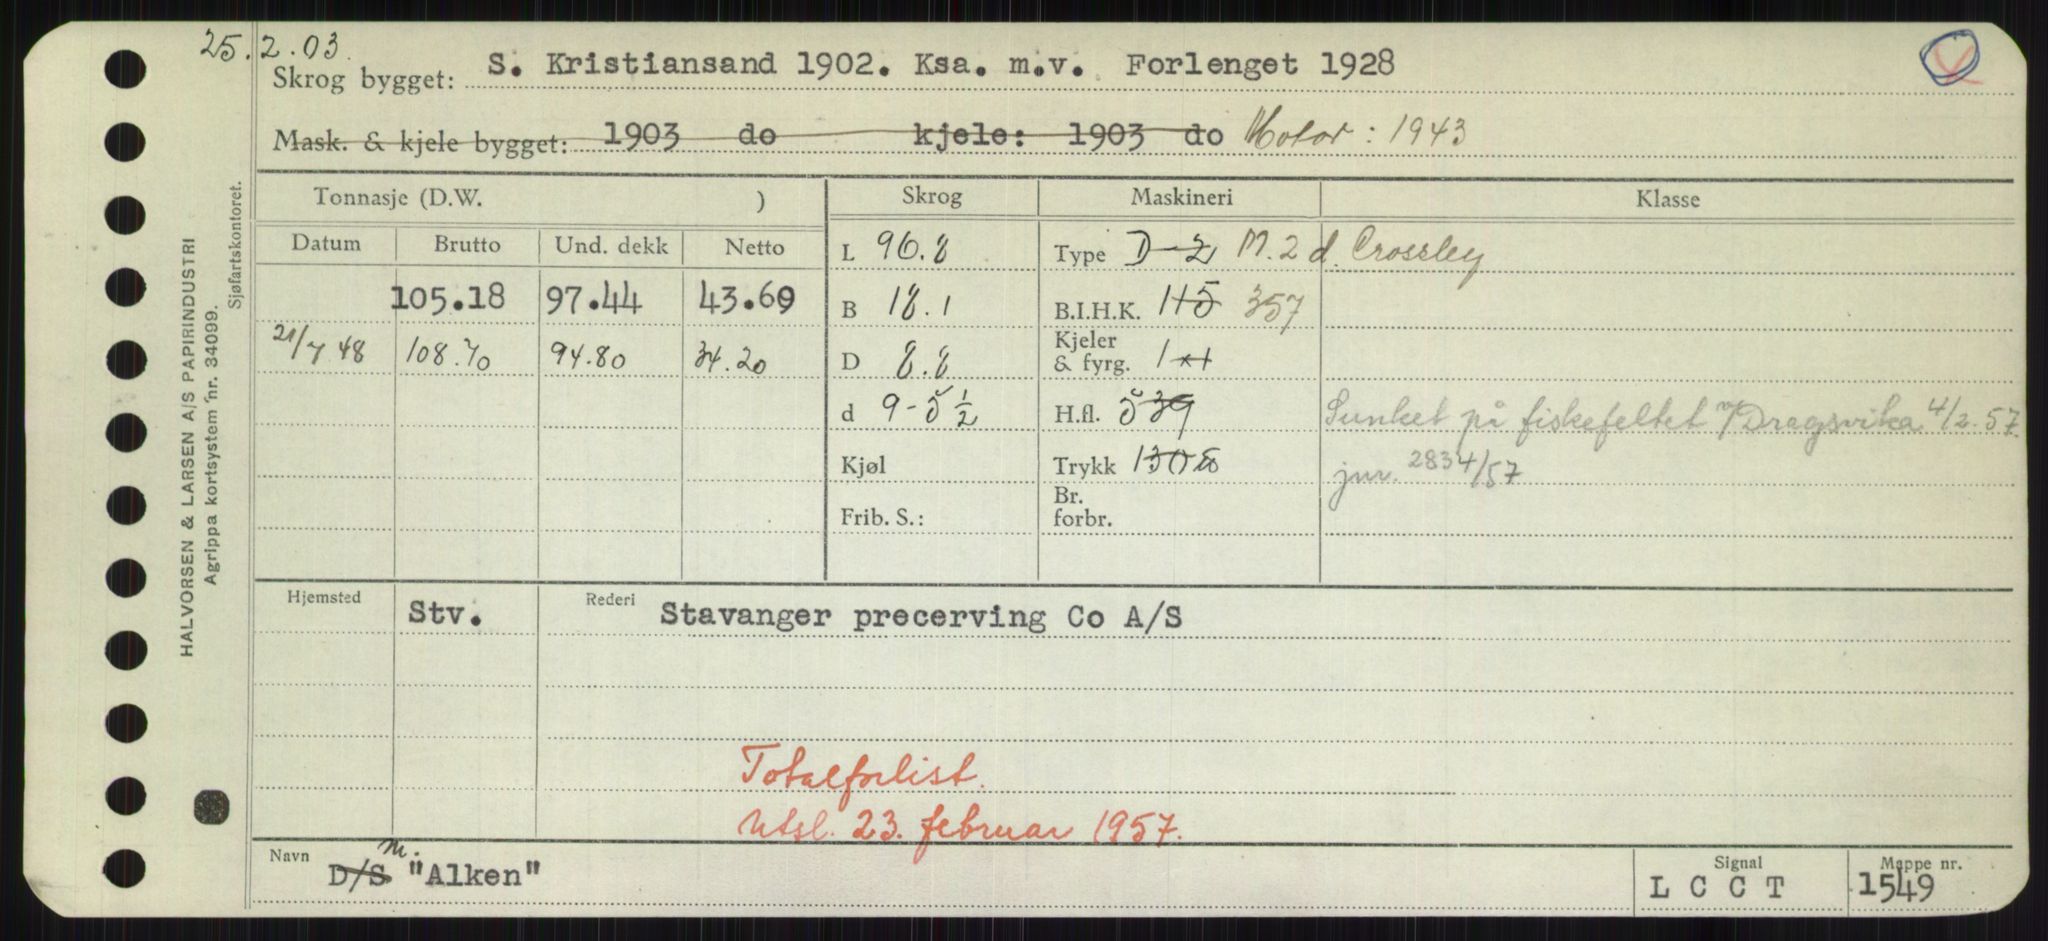 25.2.03.
Skrog bygget: S. Kristiansand 1902. Ksa. m.v. Forlenget 1928
Mask. & kjele bygget: 1903 do kjele: 1903 do Motor: 1943
Tonnasje (D.W. ) Skrog Maskineri Klasse
Datum Brutto Und. dekk Netto L 96.8 Type D-2 M.2 d. Crossley
105.18 97.44 43.69 B 18.1 B.I.H.K. 115 357
21/7 48 108.70 94.80 34.20 D 8.8 Kjeler & fyrg. 1
d 9-5½ H.fl. 539 Sunket på fiskefeltet v/Dragsvika 4/2.57.
Kjøl Trykk 130 jnr. 2834/57
Frib. S.: Br. forbr.
Hjemsted Stv. Rederi Stavanger precerving Co A/S
Totalforlist.
Utsl. 23. februar 1957.
Navn D/S m. "Alken" Signal L C C T Mappe nr. 1549
HALVORSEN & LARSEN A/S PAPIRINDUSTRI
Agrippa kortsystem nr. 34099.
Sjøfartskontoret.